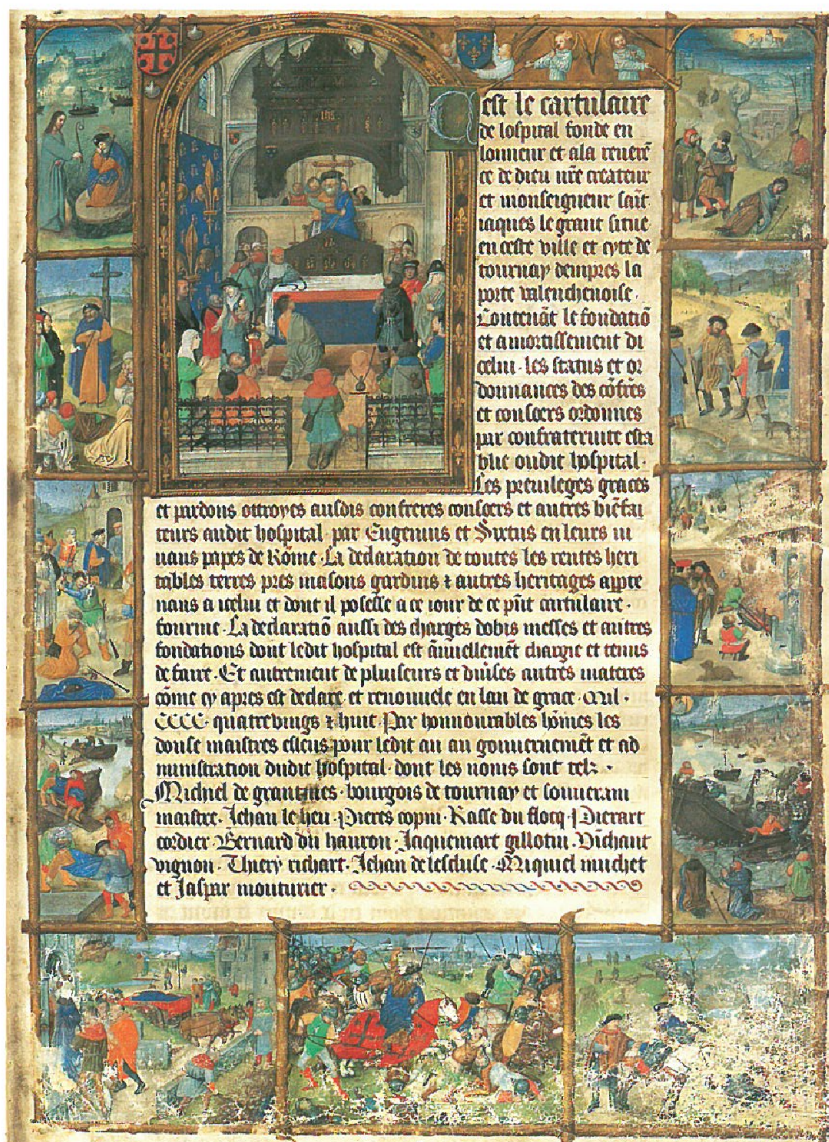 Cest le cartulaire
de lospital fonde en
lonneur et ala reuerē
ce de dieu nr̄e createur
et monseigneur saīt
iaques le grant situe
en ceste ville et cyte de
tournay dempres la
porte valenchenoise ·
Contenāt le fondatiō
et amortissement di
celui · les status et or
donnances des cōfrēs
et consoers ordonnes
par confraternite esta
blie oudit hospital ·
Les preuileges graces
et pardons ottroyes ausdis confreres consoers et autres biēfai
teurs audit hospital · par Eugenius et Sixtus en leurs vi
uans papes de Rōme · La declaration de toutes les rentes heri
tables terres pres masons gardins ⁊ autres heritages appte
nans a icelui et dont il posesse a ce iour de ce pn̄t cartulaire ·
fourme · La declaratiō aussi des charges dobis messes et autres
fondations dont ledit hospital est ānuellement chargie et tenus
de faire · Et autrement de pluiseurs et diūses autres materes
cōme cy apres est declare et renouuele en lan de grace · Mil ·
CCCC · quatre vings ⁊ huit Par honnourables hōmes les
douse maistres esleus pour ledit an au gouuernemēt et ad
ministration dudit hospital · dont les noms sont telz ·
Michiel de grantmes · bourgois de tournay et souuerain
maistre · Jehan le lieu · Pieres copin · Rasse du flocq · Pierart
cordier · Bernard du hauron · Jaquemart gillotin · Vinchant
vignon · Thiery richart · Jehan de lescluse · Miquiel muchet
et Jaspar mouturier ·